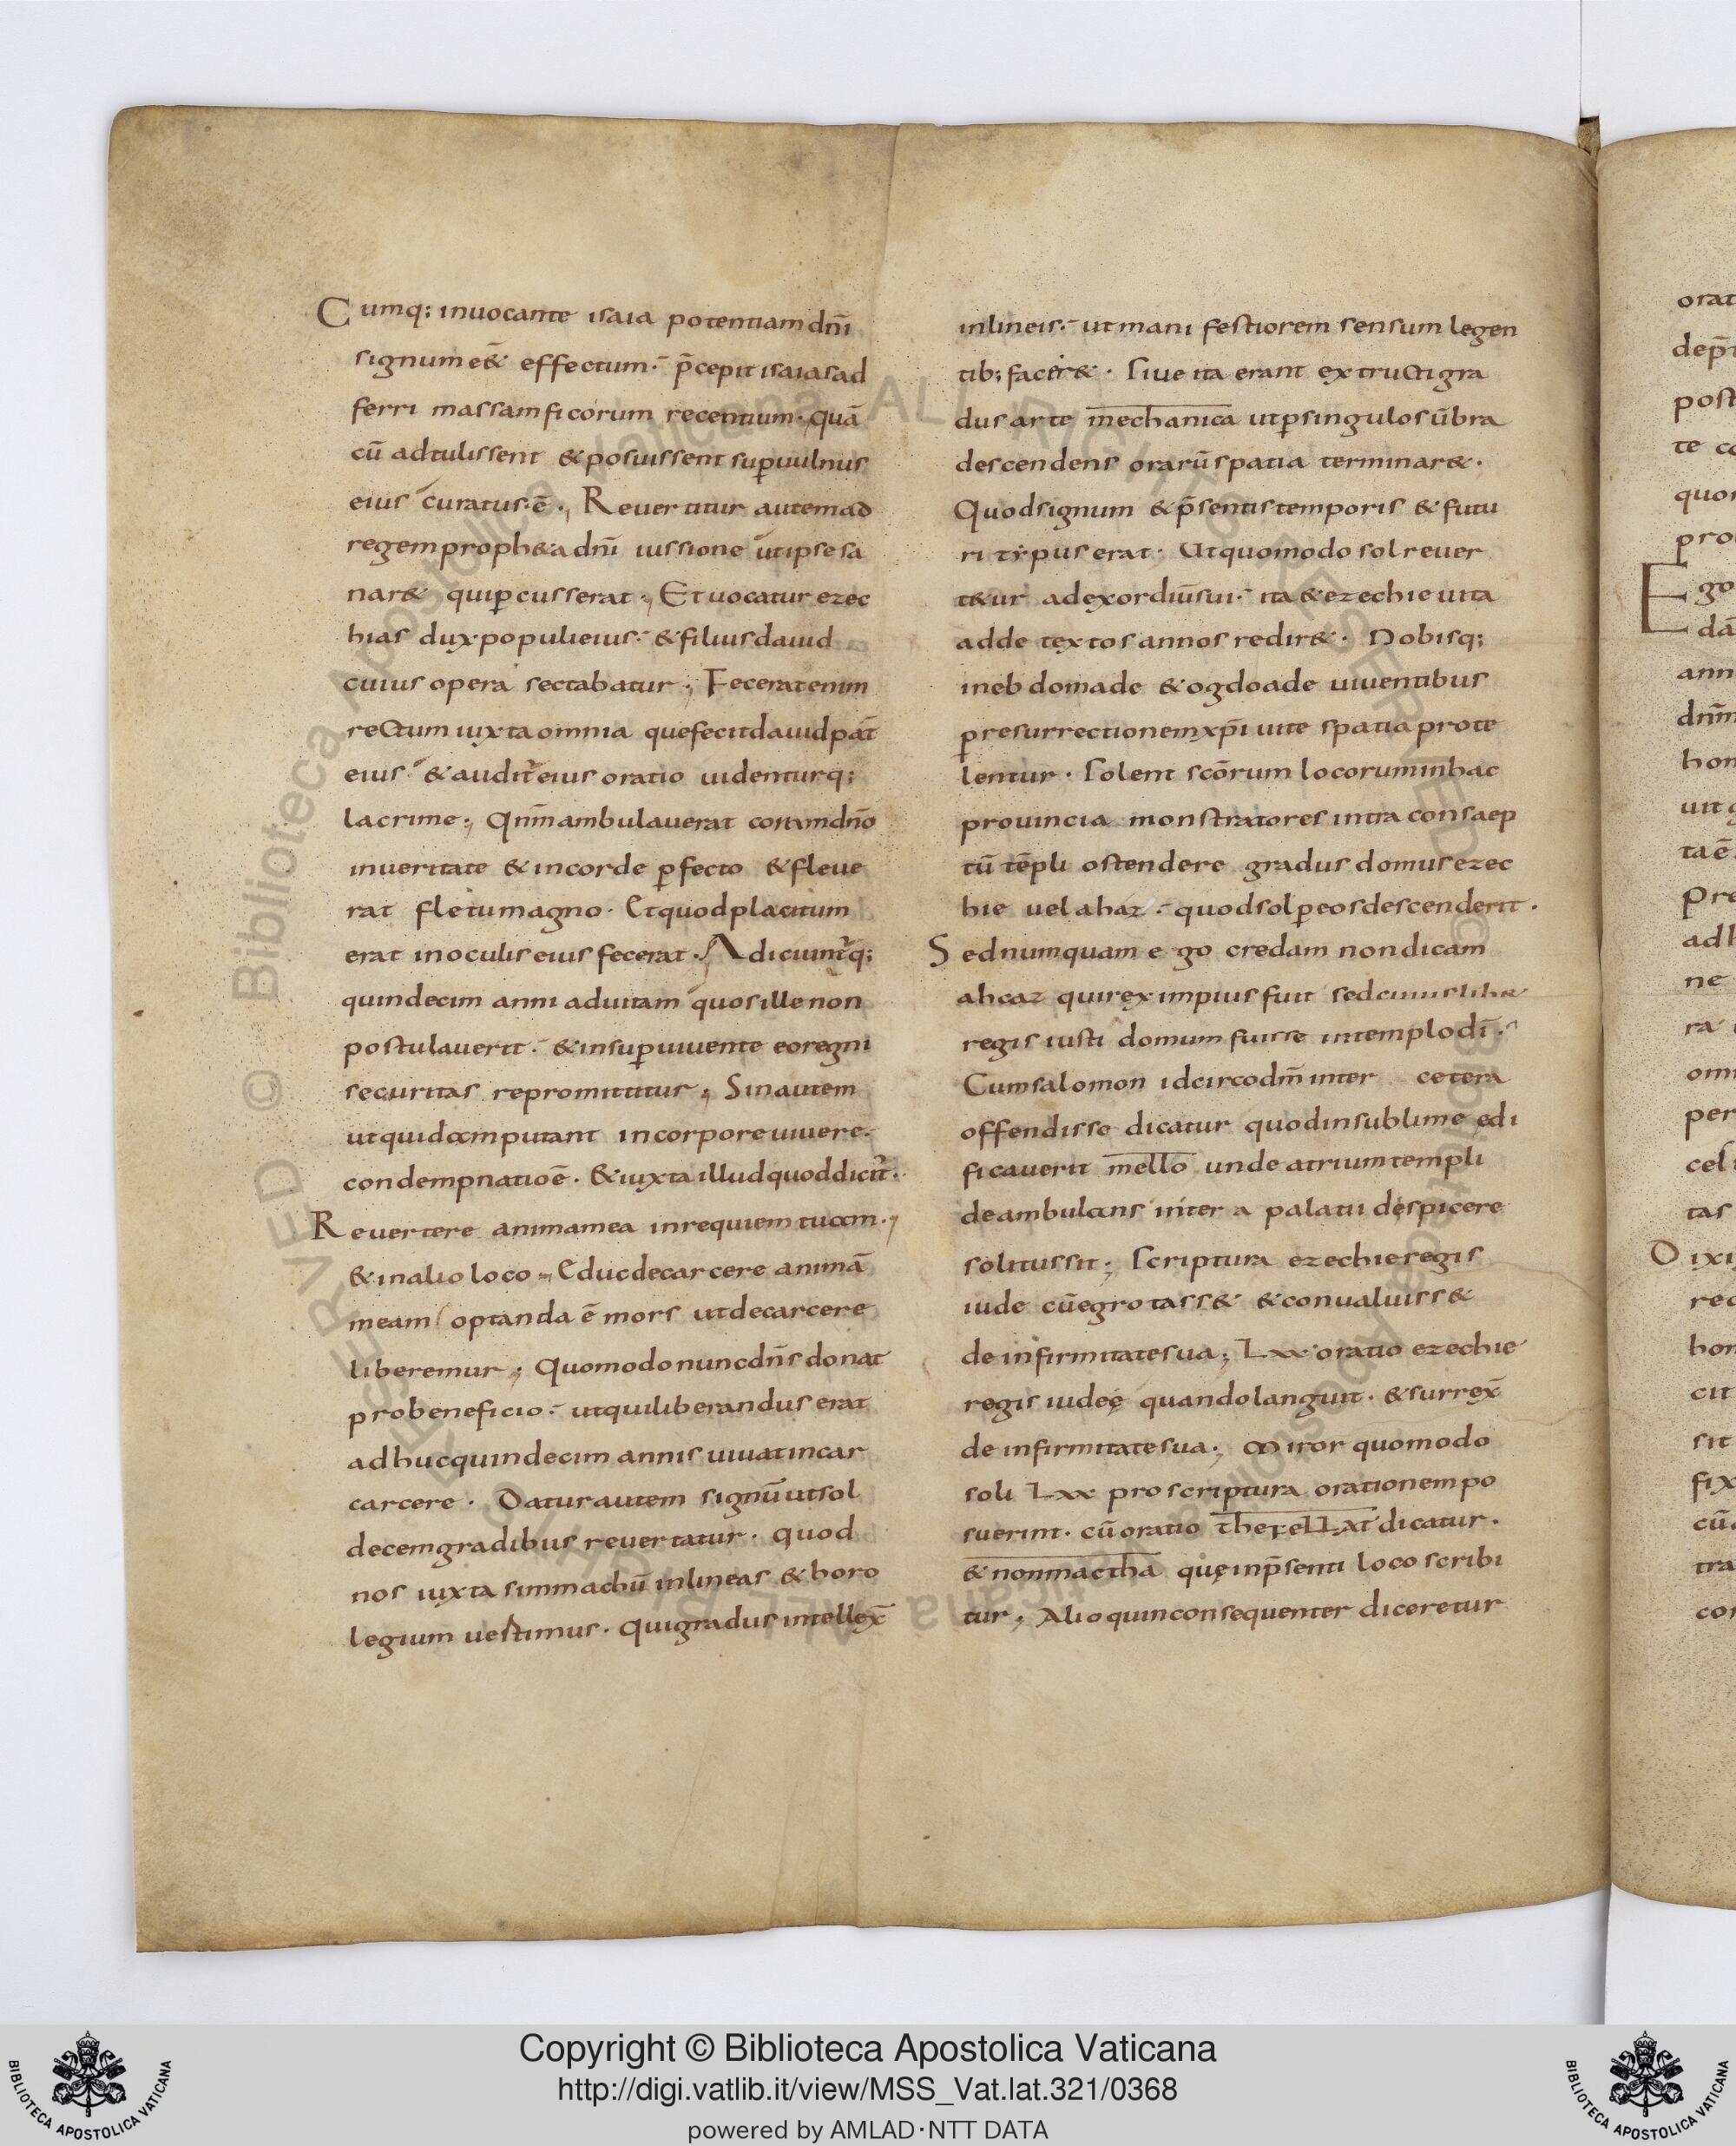 Cumq; inuocante isaia potentiam dnī
signum eē& effectum. p̄cepit isaias ad
ferri massam ficorum recentium. quā
cū adtulissent & posuissent sup uulnus
eius curatus ē. Reuertitur autem ad
regem proph&a dnī iussione ut ipse sa
nar& qui pcusserat. Et uocatur ezec
hias dux populi eius. & filius dauid
cuius opera sectabatur. Fecerat enim
rectum iuxta omnia que fecit dauid pat̄
eius & audit̄ eius oratio uidenturq;
lacrime. Qnm̄ ambulauerat coram dnō
in ueritate & in corde pfecto & fleue
rat fletu magno. Et quod placitum
erat in oculis eius fecerat. Adiciunt̄q;
quindecim anni ad uitam quos ille non
postulauerit. & insup uiuente eo regni
securitas repromittitur. Sin autem
ut quidam putant in corpore uiuere.
condempnatio ē. & iuxta illud quod dicit̄.
Reuertere anima mea in requiem tuam.
& in alio loco. Educ de carcere animā
meam optanda ē mors ut de carcere
liberemur. Quomodo nunc dns̄ donat
pro beneficio. ut qui liberandus erat
adhuc quindecim annis uiuat in car
carcere. Datur autem signū ut sol
decem gradibus reuertatur. quod
nos iuxta simmachū in lineas & horo
legium uestimus. Qui gradus intellex̄
in lineis. ut manifestiorem sensum legen
tib; facer&. Siue ita erant extructi gra
dus arte mechanica ut p singulos ūbra
descendens orarū spatia terminar&.
Quod signum & p̄sentis temporis & futu
ri typus erat. Ut quomodo sol reuer
t&ur ad exordiū sui. ita & ezechie uita
ad detextos annos redir&. Nobisq;
in ebdomade & ogdoade uiuentibus
p resurrectionem xpī uite spatia prote
lentur. Solent scōrum locorum in hac
prouincia monstratores intra consaep
tū tēpli ostendere gradus domus ezec
hie uel ahaz. quod sol p eos descenderit.
Sed numquam ego credam non dicam
ahcaz qui rex impius fuit sed cuiuslib&
regis iusti domum fuisse in templo dī.
Cum salomon idcirco dm̄ inter cetera
offendisse dicatur quod in sublime edi
ficauerit mello unde atrium templi
deambulans inter a palatii despicere
solitus sit. Scriptura ezechie regis
iude cū egrotass& & conualuiss&
de infirmitate sua. Lxx oratio ezechie
regis iudeę quando languit. & surrex̄
de infirmitate sua. Miror quomodo
soli Lxx pro scriptura orationem po
suerint. cū oratio dicatur.
& non mactha quę in p̄senti loco scribi
tur. Alioquin consequenter diceretur
Copyright © Biblioteca Apostolica Vaticana
http://digi.vatlib.it/view/MSS_Vat.lat.321/0368
powered by AMLAD·NTT DATA
BIBLIOTECA APOSTOLICA VATICANA
BIBLIOTECA APOSTOLICA VATICANA